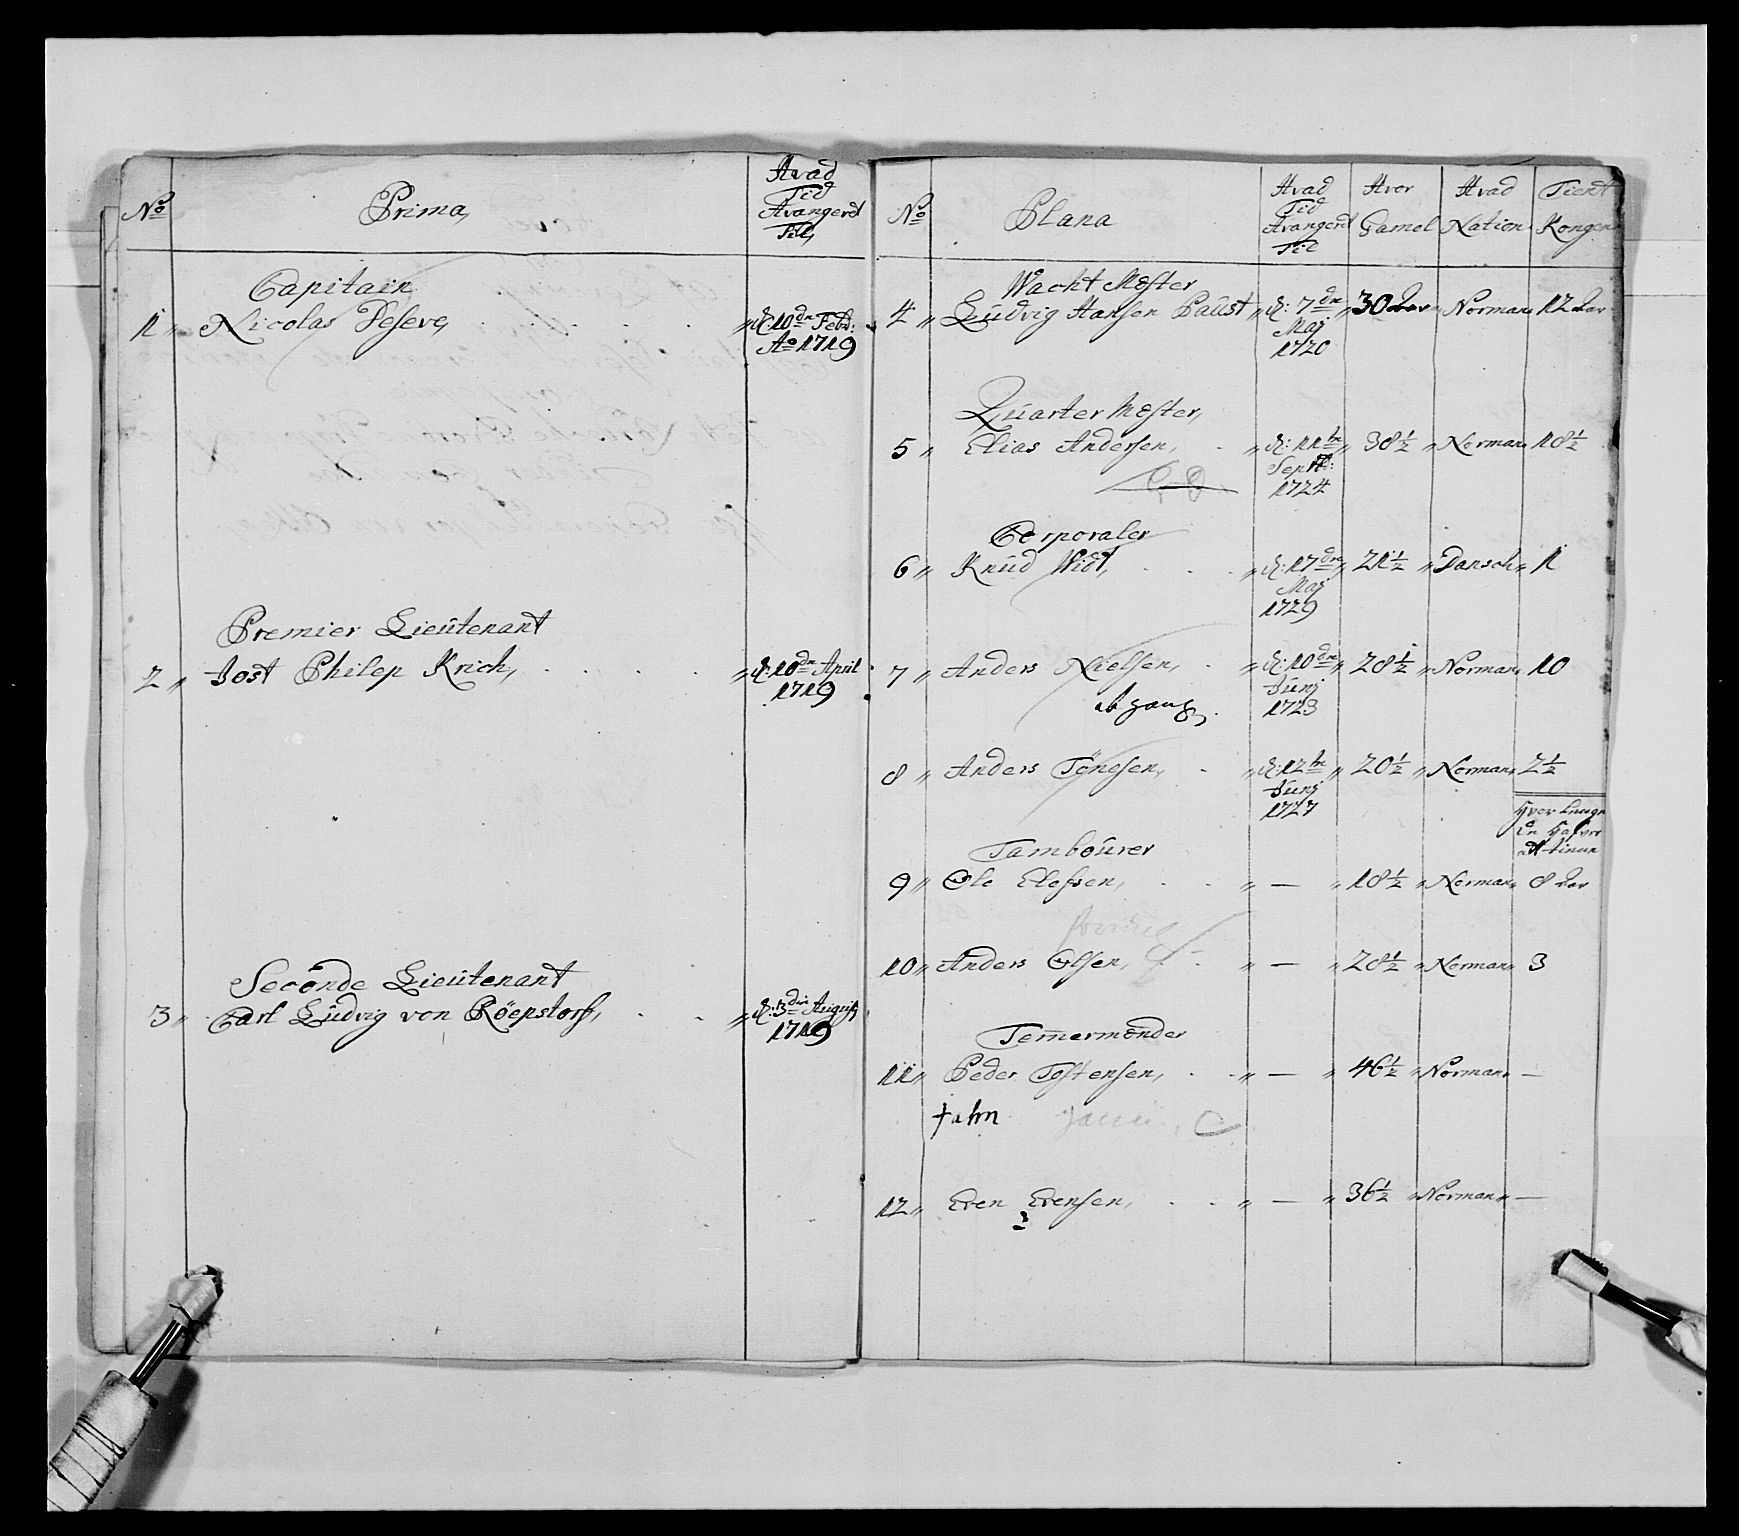 No
Prima,
Hvad
Tid
Avangerd
Til,
Capitain
1 „ Nicolas Deseve, „ d: 10de Febr:
Ao 1719
Premier Lieutenant
2 „ Jost Philep Krich, „ d: 10de April
1719
Seconde Lieutenant
3 „ Carl Ludvig von Röepstorf, „ d: 3die Augusti
1719
No
Plana
Hvad
Tid
Avangerd
Til
Hvor
Gamel
Hvad
Nation
Tient
Kongen
Wacht Mester
4 „ Ludvig Hansen Paust „ d: 7de „ 30 Aar „ Norman „ 12 Aar
Maj
1720
Quarter Mester,
5 „ Elias Andersen, „ d: 11te „ 38½ „ Norman „ 18½
Septb:
1724
Corporaler
6 „ Knud Widt, „ d: 17de „ 21½ „ Dansch „ 1
Maj
1729
7 „ Anders Nielsen, „ d: 10de „ 28½ „ Norman „ 10
Junj
1723
abgang
8 „ Anders Tönesen, „ d: 12te „ 20½ „ Norman „ 2½
Junj
1727
Tambourer
9 „ Ole Elefsen, „ — „ 18½ „ Norman „ 8 Aar
10 „ Anders Olsen, „ — „ 28½ „ Norman „ 3
Temermænder
11 „ Peder Tostensen, „ — „ 46½ „ Norman „ —
12 „ Even Evensen, „ — „ 36½ „ Norman „ —